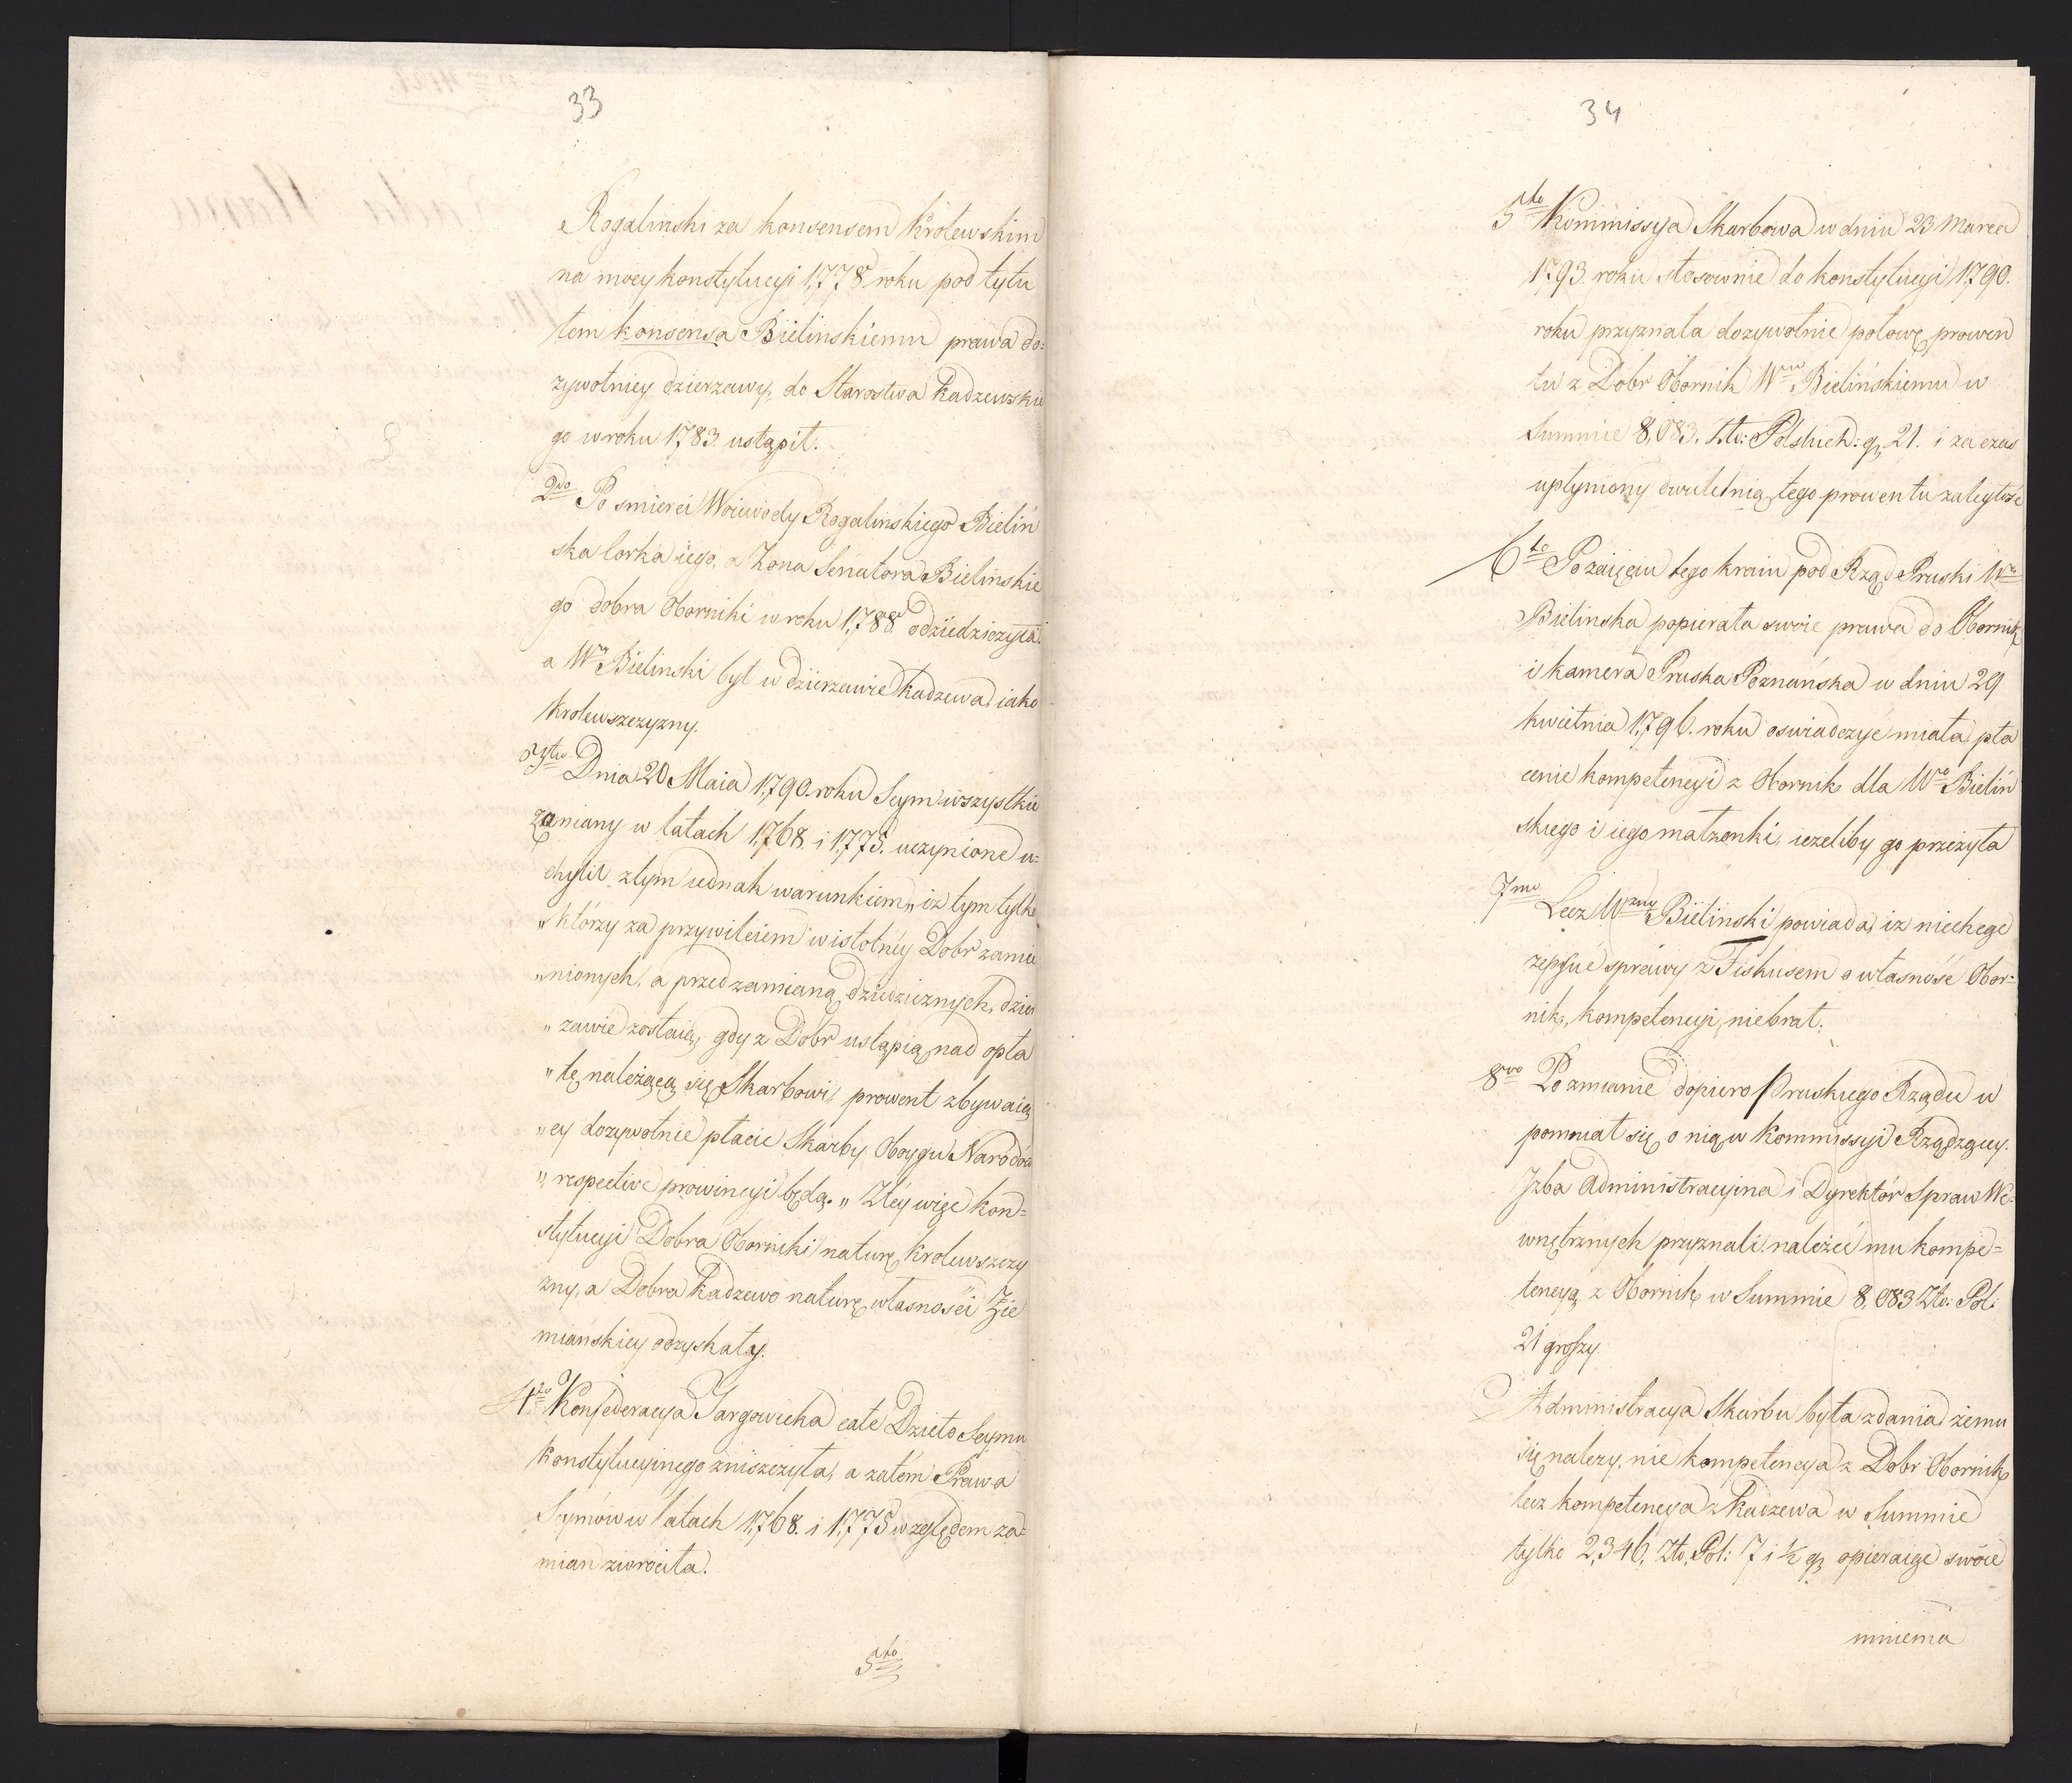 33
Rogalinski za konsensem Krolewskim
na mocy konstytucyi 1,778 roku pod tytu
tem konsensa Bielinskiemu prawa do=
zywotniey dzierzawy, do Starostwa Kadzewskie
go w roku 1,783. ustąpił.
2do Po smierci Woiewody Rogalinskiego Bieliń
ska Corka iego, a Zona Senatora Bielinskie
go dobra Oborniki w roku 1,788 odziedziczyła.
a Wny Bielinski był w dzierzawie Kadzewa, iako
Krolewszczyzny.
3tio Dnia 20 Maia 1,790. roku Seym wszystkie
zamiany w latach 1,768. i 1,775. uczynione u=
chylił z tym iednak warunkiem „iz tym tylko
„którzy za przywileiem w istotnéy Dobr zamie
„nionych, a przed zamianą dziedzicznych, dzier
„zawie zostaią, gdy z Dobr ustąpią nad opła
„tę należącą się Skarbowi, prowent zbywaią
„cy dozywotnie płacić Skarby Oboygu Narodów
„respective prowincyi będą. „ Z téy więc kon=
stytucyi Dobra Oborniki naturę Krolewszczy
zny, a Dobra Kadzewo naturę własności Zie
miańskiey odzyskały.
4to Konfederacya Targowicka całe Dzieło Seymu
Konstytucyinego zniszczyła, a zatém Prawa
Seymów w latach 1,768. i 1,775 względem za=
mian zwrociła.
5to
34
5to Kommissya Skarbowa w dniu 23 Marca
1793 roku stosownie do konstytucyi 1,790.
roku przyznała dozywotnie połowę prowen
tu z Dobr Obornik Wmu Bielińskiemu w
Summie 8,083. Zło: Polskich: gr 21. i za czas
upłyniony dwuletnią tego prowentu zaległość
6to Po zaięciu tego kraiu pod Rząd Pruski Wa
Bielinska popierała swoie prawa do Obornik
i kamera Pruska Poznańska w dniu 29
kwietnia 1,796. roku oswiadczyć miała pła
cenie kompetencyi z Obornik dla Wgo Bieliń
skiego i iego małzonki, iezeliby go przezyła
7mo Lecz Wzny Bieliński powiada, iz niechcąc
zepsuć sprawy z Fiskusem o własność Obor=
nik, kompetencyi niebrał.
8vo Po zmianie dopiero Pruskiego Rządu u
pomniał się o nią w Kommissyi Rządzącey.
Jzba Administracyina i Dyrektór Spraw We=
wnętrznych przyznali należeć mu kompe=
tencyą z Obornik w Summie 8,083 Zło: Pol:
21 groszy.
Administracya Skarbu była zdania żemu
się nalezy, nie kompetencya z Dobr Obornik
lecz kompetencya z Kadzewa w Summie
tylko 2,346, Zło, Pol: 7 i ½ gr opieraiąc swóie
mniema